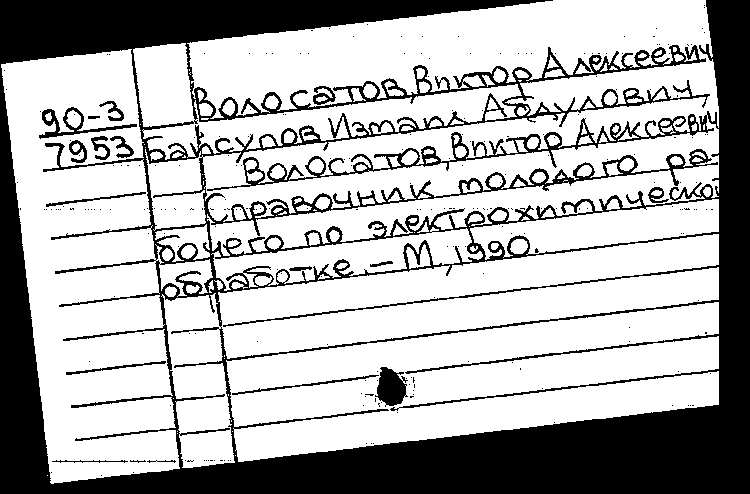 90-3
7953
Волосатов, Виктор Алексеевич
Байсупов, Измаил Абдулович,
Волосатов, Виктор Алексеевич
Справочник молодого ра-
бочего по электрохимической
обработке. – М, 1990.